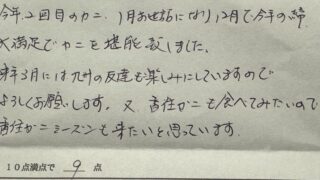 今年2回目のカニ、1月お世話になり12月で今年の締
大満足でカニを堪能致しました。
来年3月には九州の友達も楽しみにしていますので
よろしくお願いします。又、香住がにも食べてみたいので
香住がにシーズンも来たいと思っています。
10点満点で 9 点